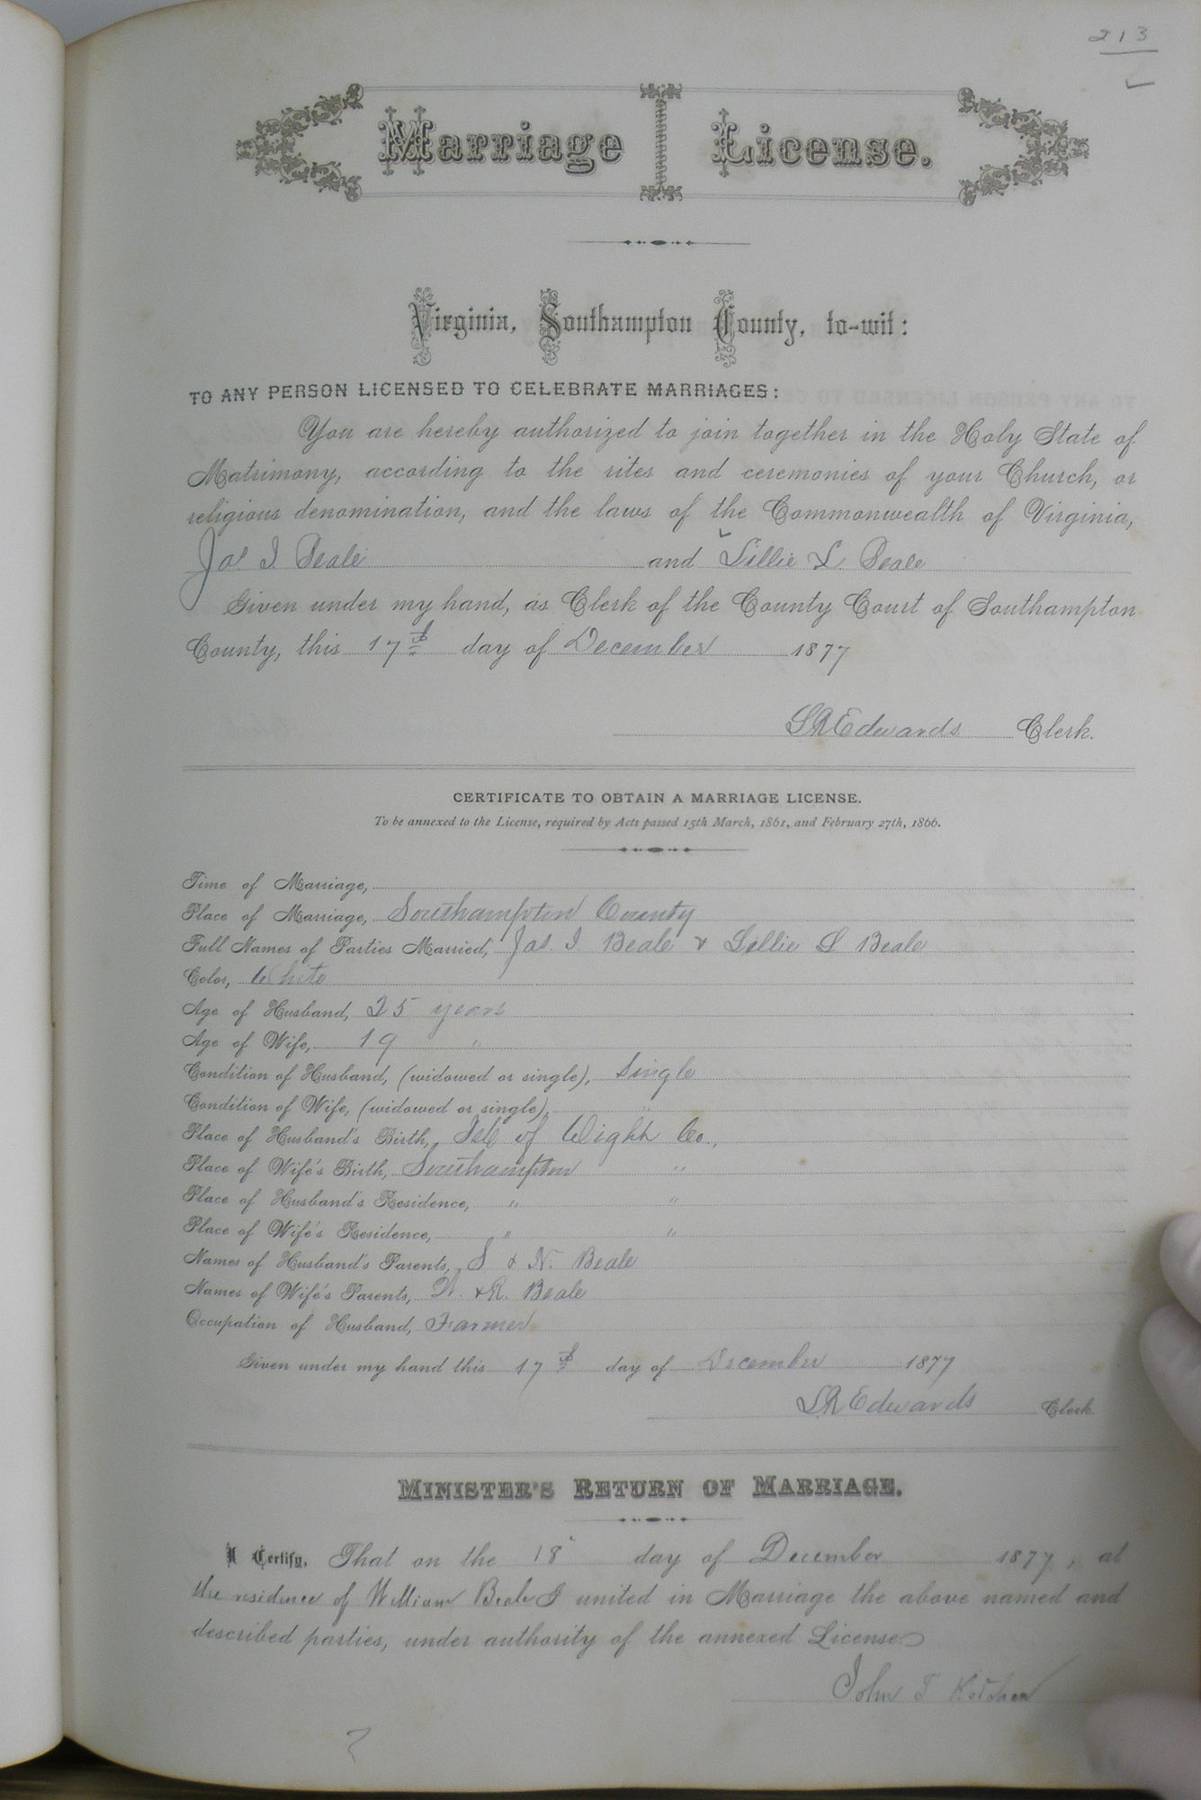 213
Marriage License.
Virginia, Southampton County, to-wit:
TO ANY PERSON LICENSED TO CELEBRATE MARRIAGES:
You are hereby authorized to join together in the Holy State of
Matrimony, according to the rites and ceremonies of your Church, or
religious denomination, and the laws of the Commonwealth of Virginia,
Jas I Beale and Lillie L. Beale
Given under my hand, as Clerk of the County Court of Southampton
County, this 17th day of December 1877
L R Edwards Clerk.
CERTIFICATE TO OBTAIN A MARRIAGE LICENSE.
To be annexed to the License, required by Acts passed 15th March, 1861, and February 27th, 1866.
Time of Marriage,
Place of Marriage, Southampton County
Full Names of Parties Married, Jas. I Beale & Lillie L Beale
Color, White
Age of Husband, 25 years
Age of Wife, 19 "
Condition of Husband, (widowed or single), Single
Condition of Wife, (widowed or single), "
Place of Husband's Birth, Isle of Wight Co.,
Place of Wife's Birth, Southampton "
Place of Husband's Residence, " "
Place of Wife's Residence, " "
Names of Husband's Parents, S & N. Beale
Names of Wife's Parents, W. & R. Beale
Occupation of Husband, Farmer
Given under my hand this 17th day of December 1877
L R Edwards Clerk
MINISTER'S RETURN OF MARRIAGE.
I Certify, That on the 18 day of December 1877, at
the residence of William Beale I united in Marriage the above named and
described parties, under authority of the annexed License
John T